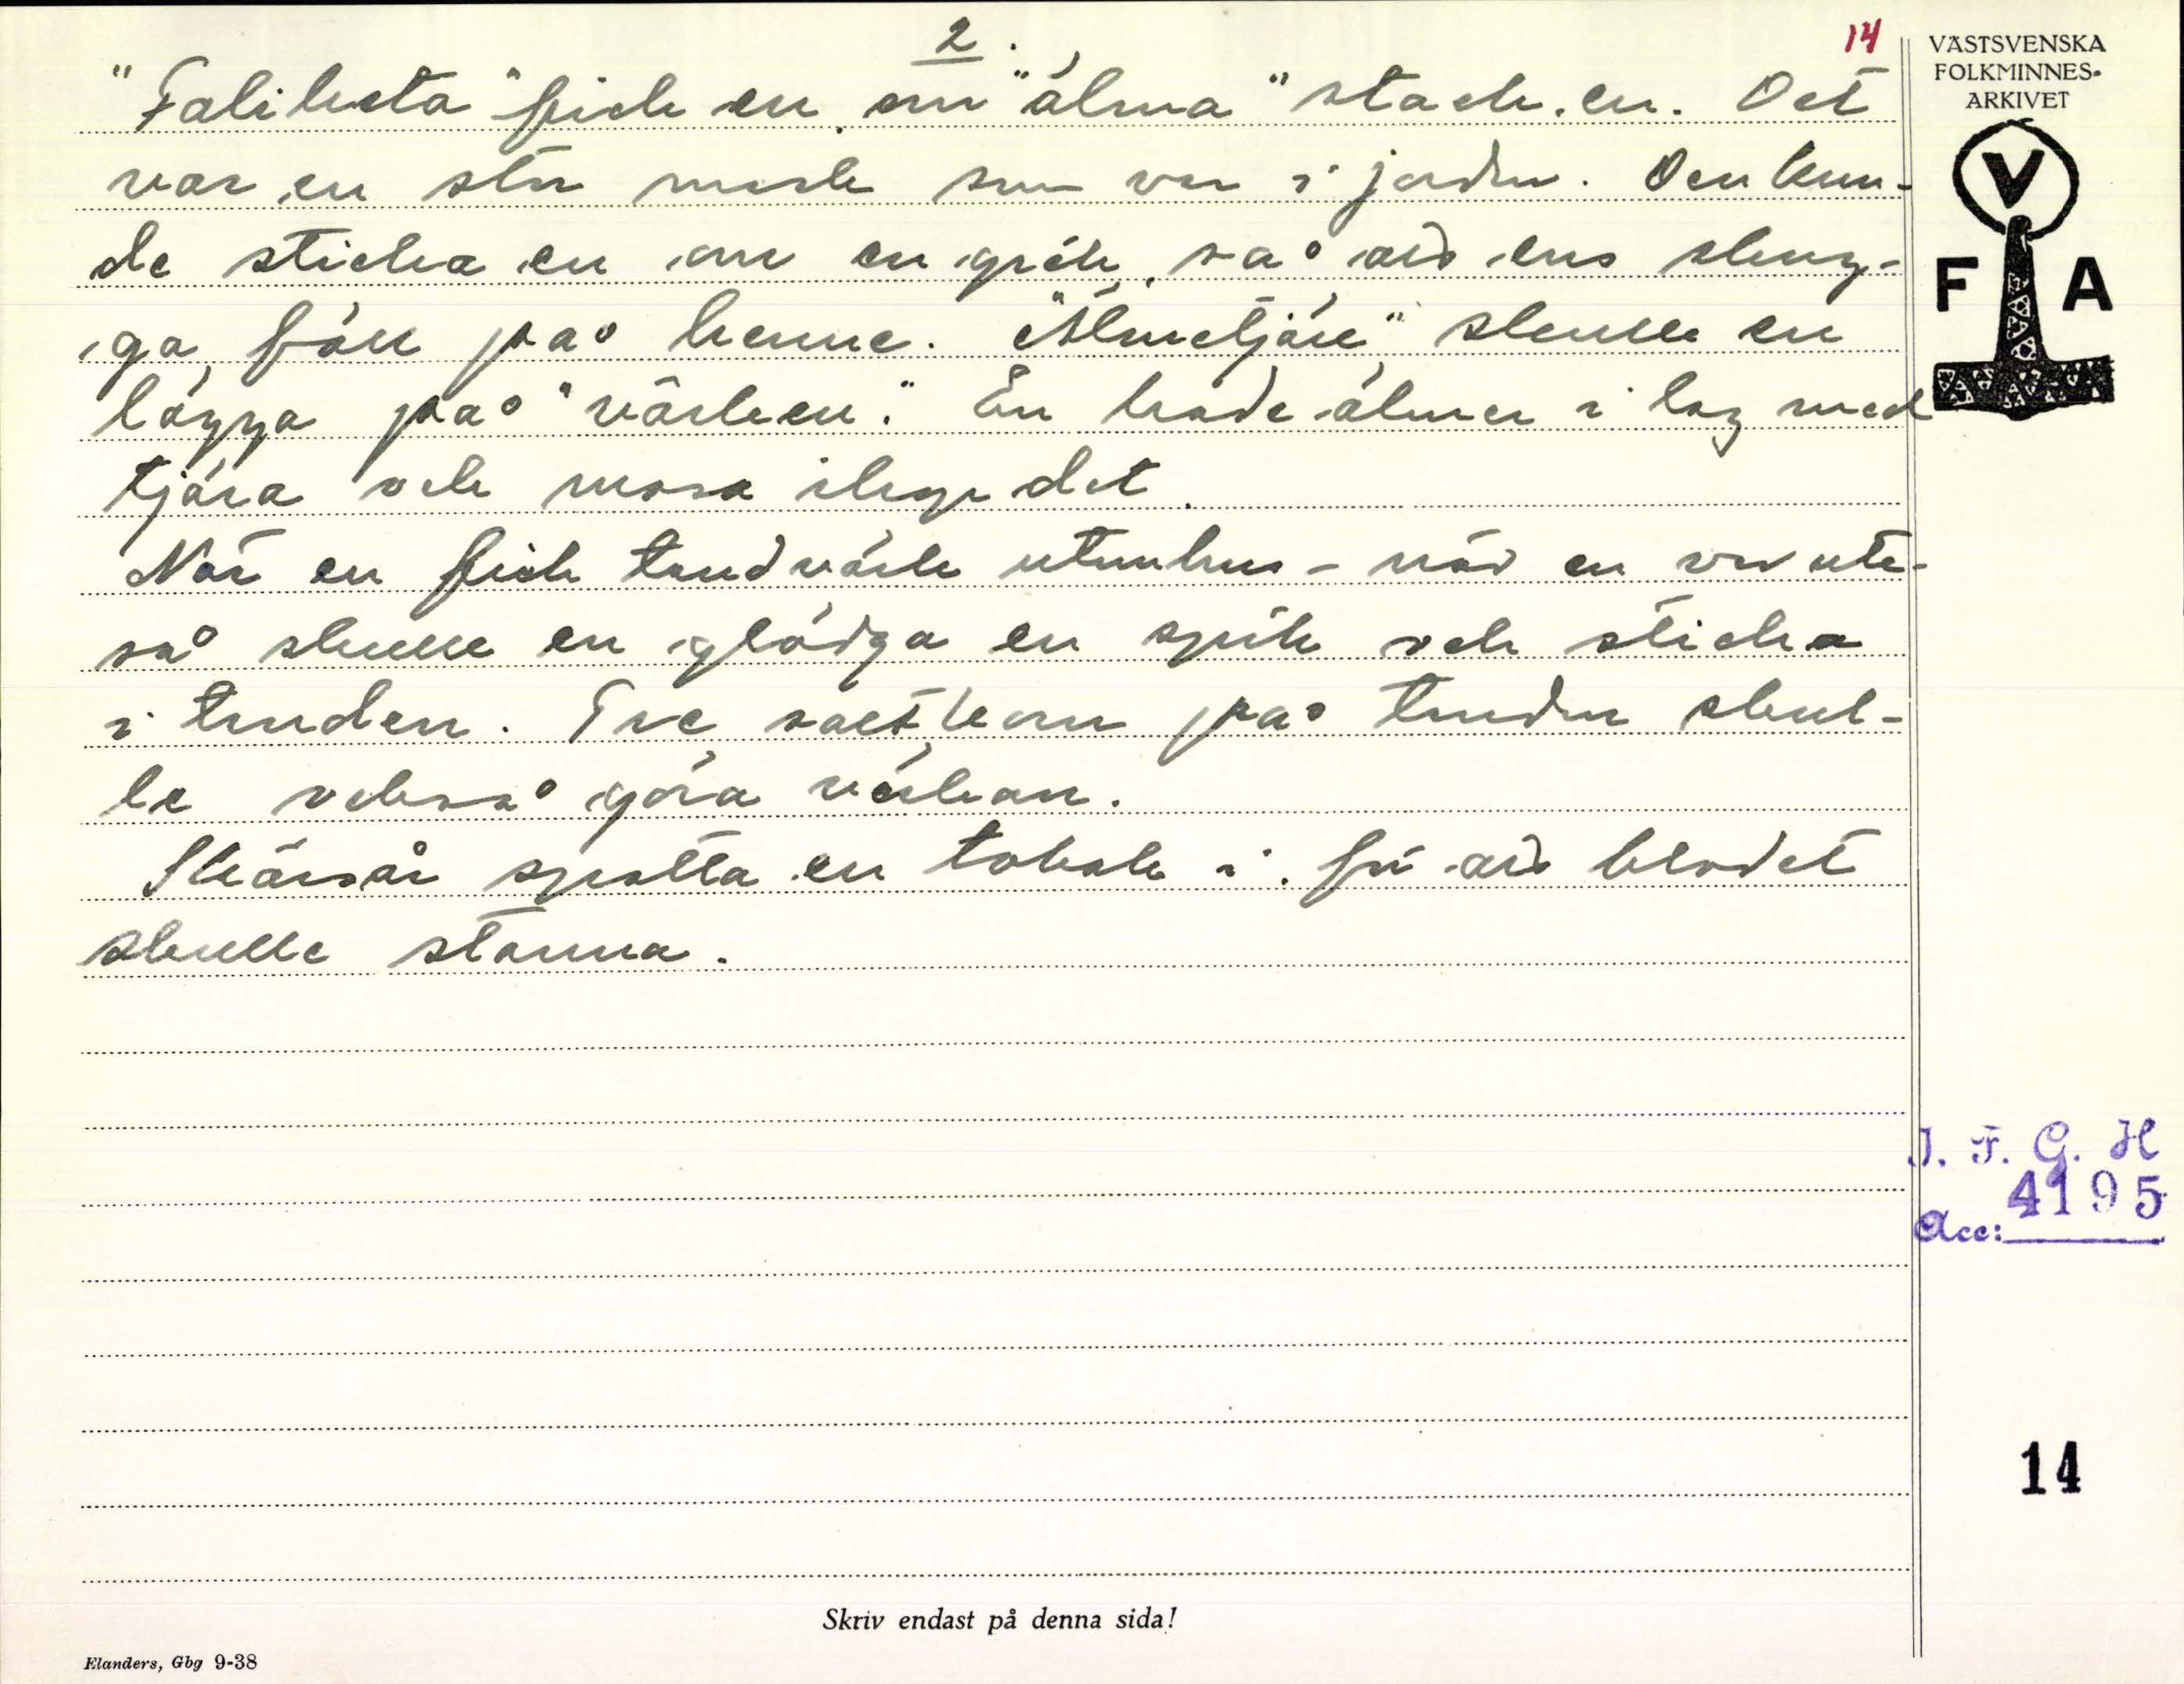 2.
14
"Talibeta" fick en om "älma" stack en. Det
var en stor mask som var i jorden. Den kun-
de sticka en om en gick så att ens skug-
ga föll på henne. "Älmetjäre" skulle en
lägga på "värken". En hade älmer i lag med
tjära och mosa ihop det.
När en fick tandvärk utomhus - när en var ute -
så skulle en glödga en spik och sticka
i tanden. Tre saltkorn på tanden skul-
le också göra värkan.
Skärsår spotta en tobak i. för att blodet
skulle stanna.
VÄSTSVENSKA
FOLKMINNES-
ARKIVET
V
F A
I. F. G. H
4195
Acc:
14
Skriv endast på denna sida!
Elanders, Gbg 9-38